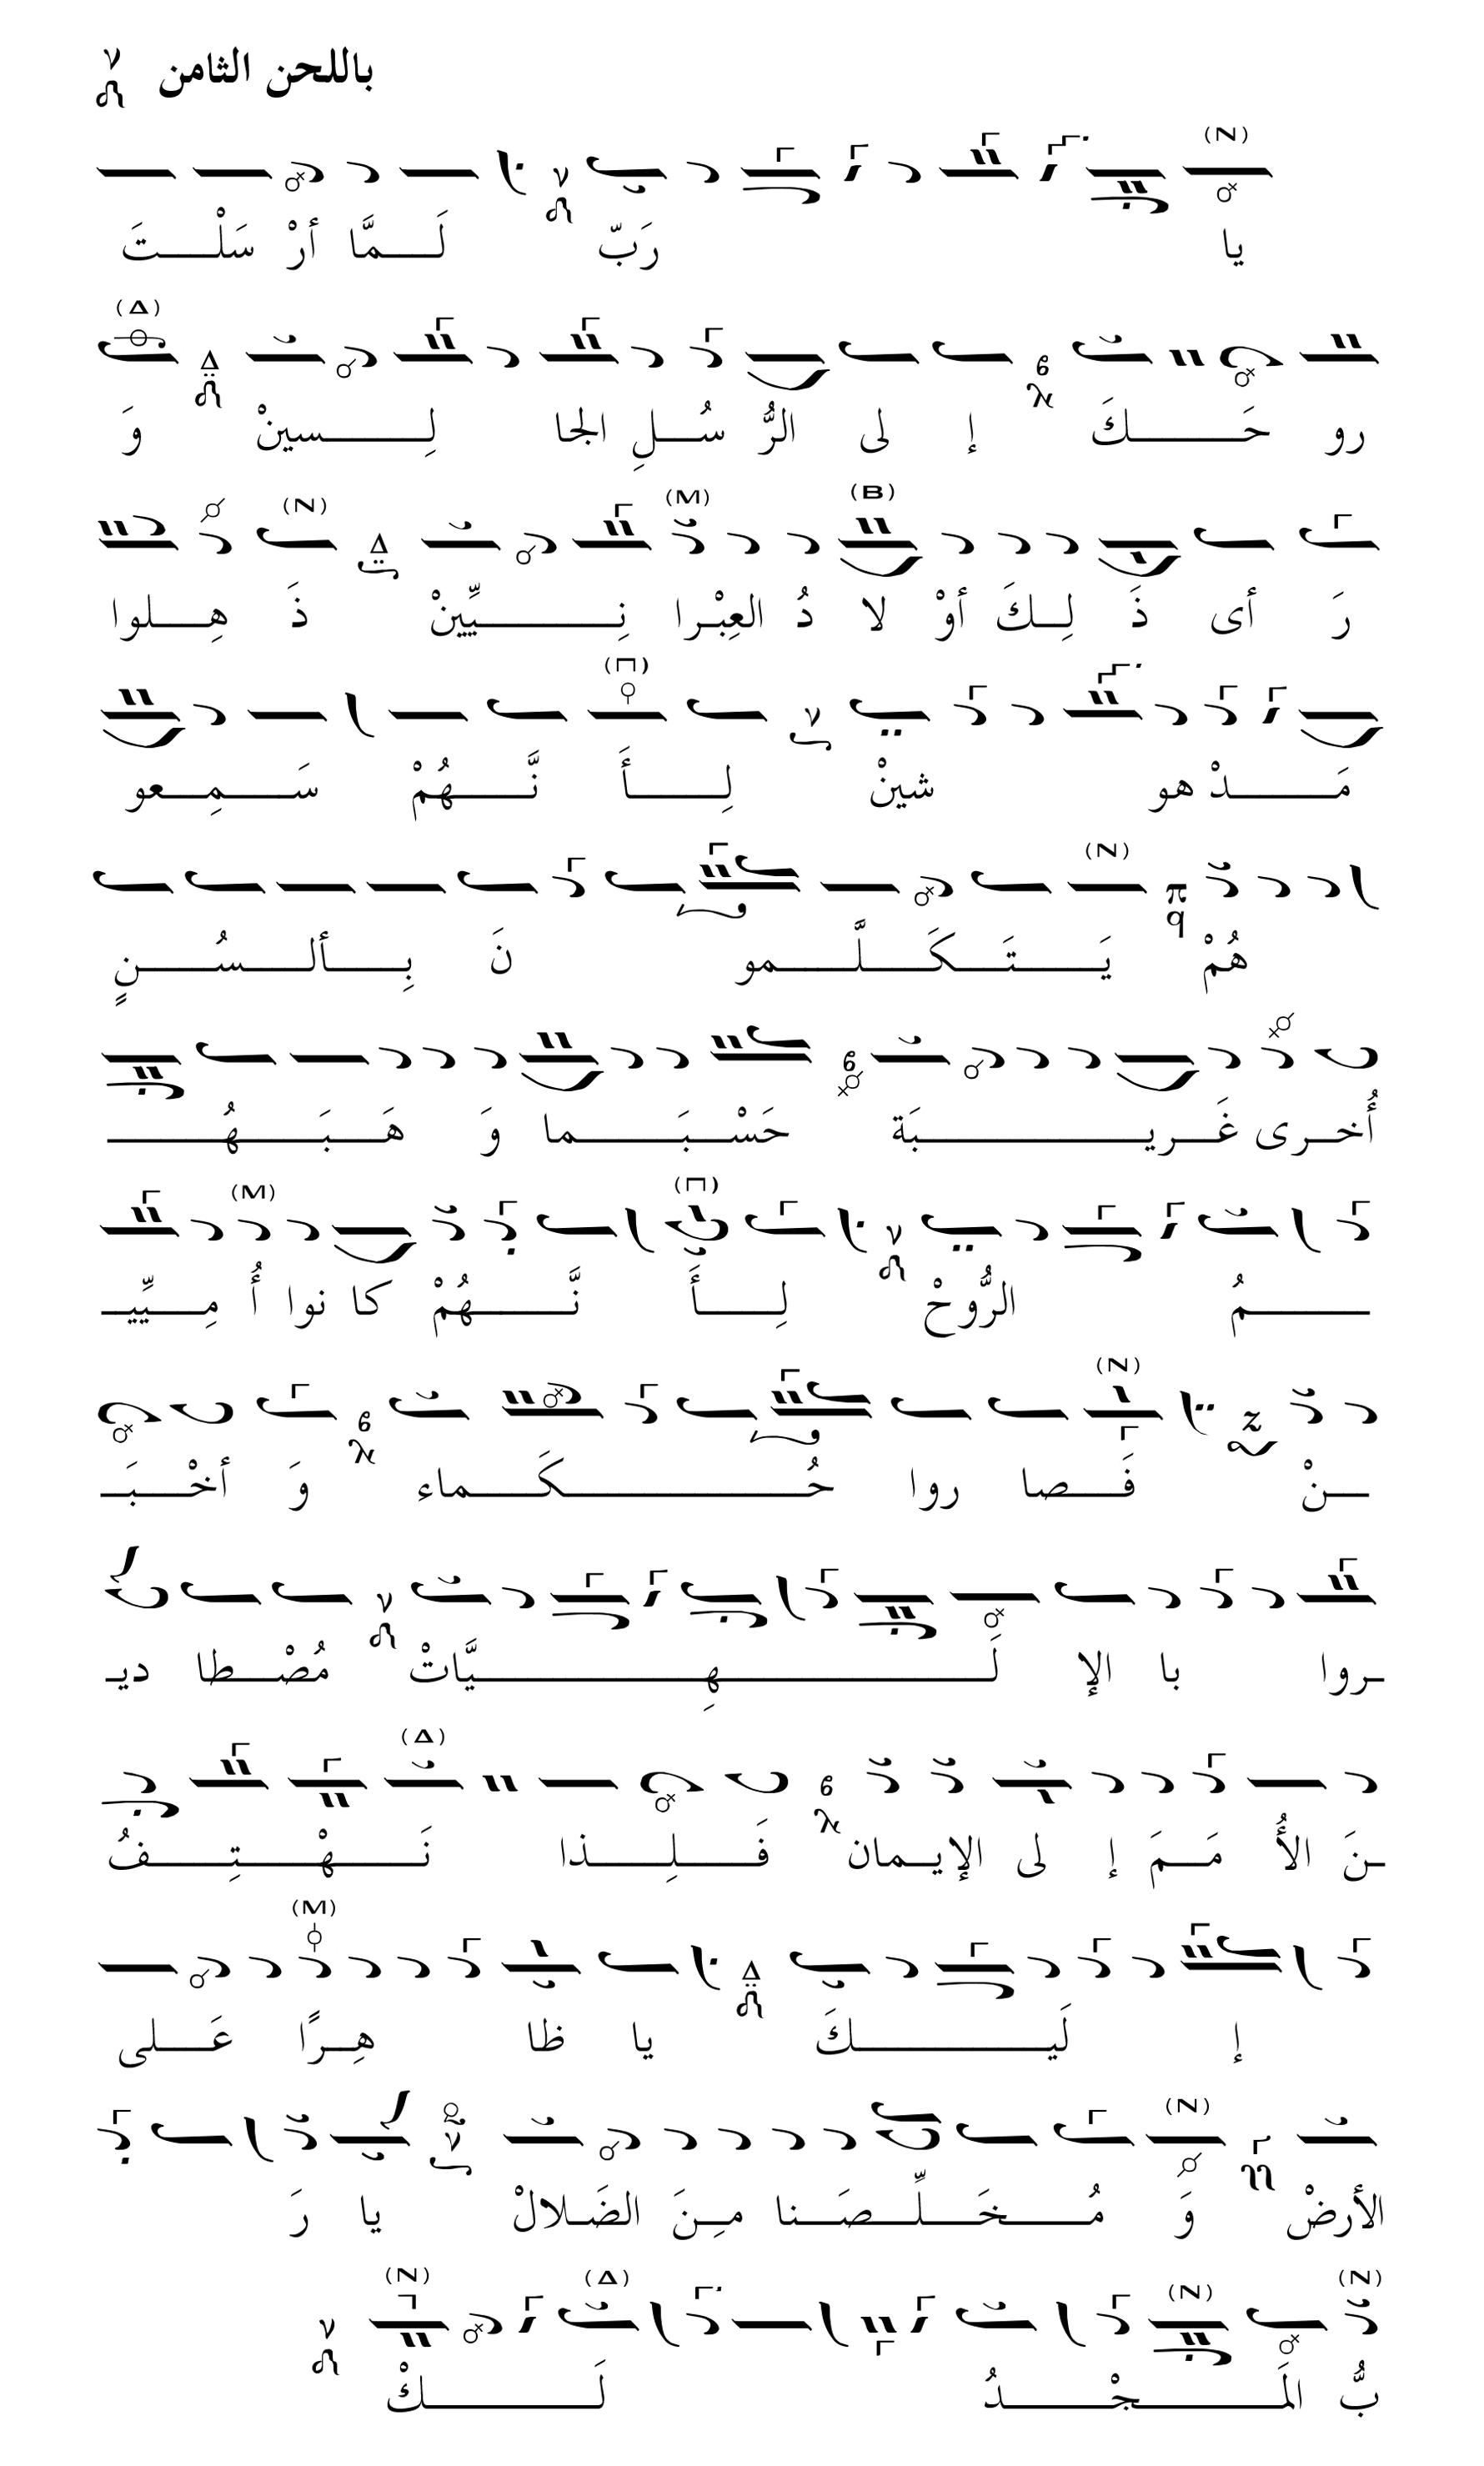 باللحن الثامن
يا رَبّ لَـمَّا أرْ سَلْـتَ
رو حَـكَ إ لى الرُّ سُـلِ الجا لِـسينْ وَ
رَ أى ذَ لِـكَ أوْ لا دُ العِبْـرا نِـيِّينْ ذَ هِـلوا
مَـدْ هو شينْ لِـأَ نَّـهُمْ سَـمِـعو
هُمْ يَـتَـكَـلَّـمو نَ بِـألـسُـنٍ
أُخـرى غَـريـبَة حَسْـبَـما وَ هَـبَـهُـ
ـمُ الرُّوحْ لِـأَ نَّـهُمْ كا نوا أُ مِـيِّيـ
ـنْ فَـصا روا حُـكَـماء وَ أخْـبَـ
ـروا با الإ لَـهِـيَّاتْ مُصْـطا ديـ
ـنَ الأُ مَـمَ إ لى الإيـمان فَـلِـذا نَـهْـتِـفُ
إ لَيـكَ يا ظا هِـرًا عَـلى
الأرضْ وَ مُـخَـلِّـصَـنا مِـنَ الضَـلالْ يا رَ
بُّ المَـجْـدُ لَـكْ